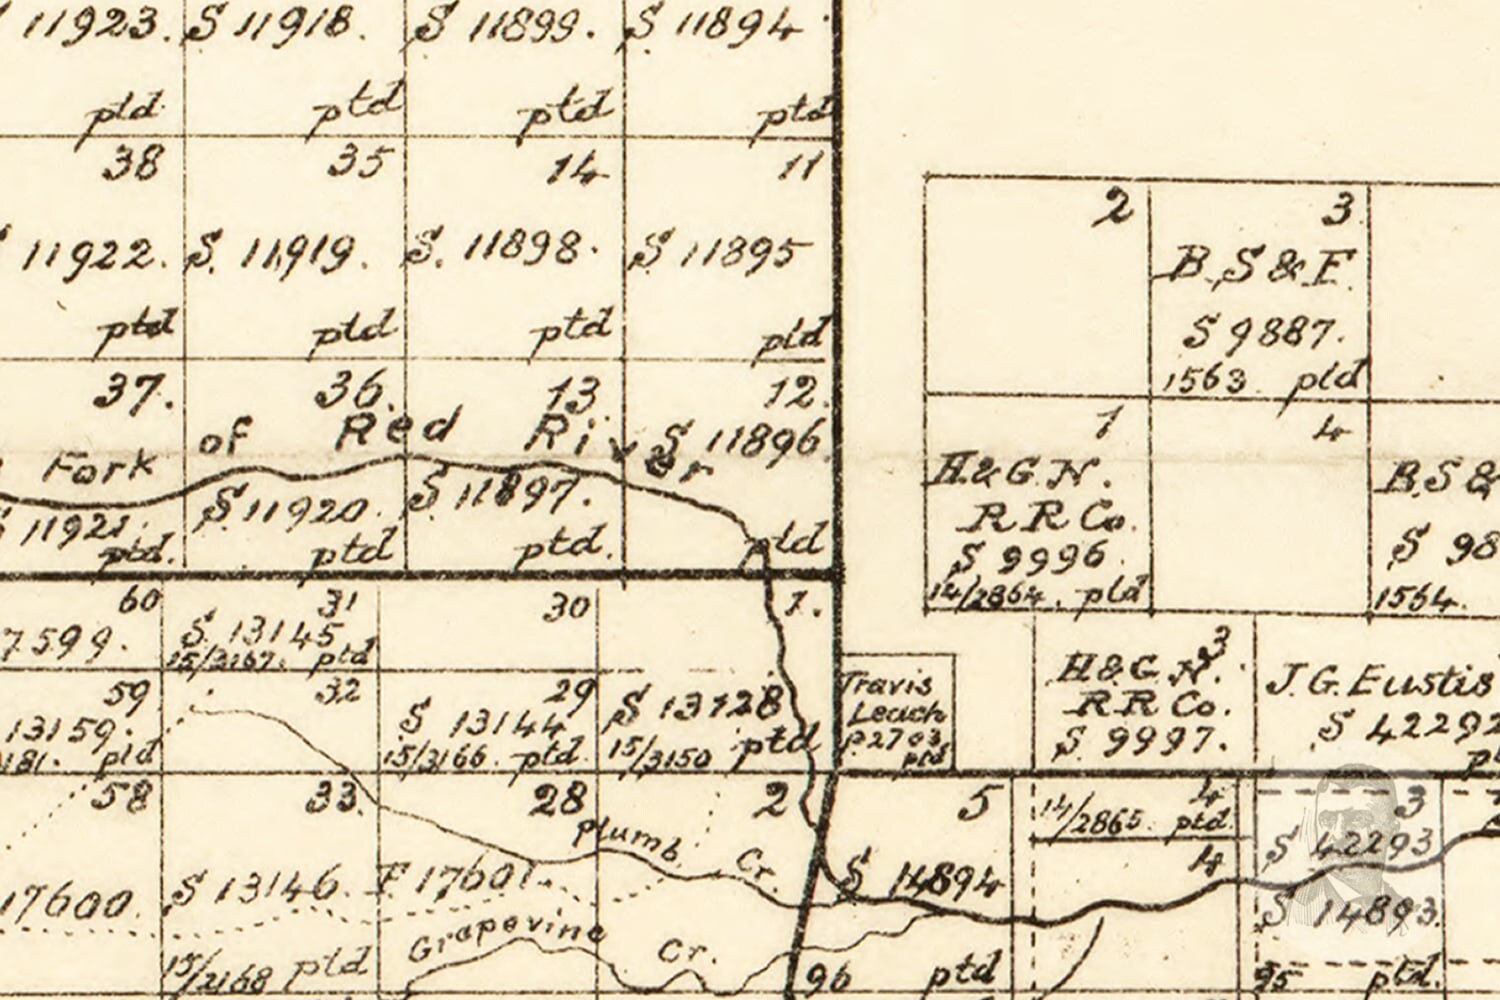 11923. S 11918. S 11899. S 11894
ptd ptd ptd ptd
38 35 14 11
11922. S. 11919. S. 11898. S 11895
ptd ptd ptd ptd
37. 36. 13 12.
Fork of Red River
S 11896.
11921. S. 11920. S 11897.
ptd. ptd ptd. ptd
2 3
B.S & F.
S 9887.
1563 ptd
1 4
H & G. N.
R R Co.
S 9996.
14/2864. ptd
B.S &
S 98
1564.
60 31 30 1.
7599. S. 13145
15/3167. ptd
59 32 29
13159. S 13144 S 13128
181. ptd 15/3166. ptd. 15/3150 ptd
Travis
Leach
P2703
ptd
3
H & G. N.
R R Co.
S. 9997.
J. G. Eustis
S 42292
58 33. 28 2 5 4 3
14/2865. ptd
Plumb Cr.
4
S 42293
17600. S 13146. F 17601. S 14894
S 14893.
Grapevine Cr.
15/3168 ptd
96 ptd
95 ptd.